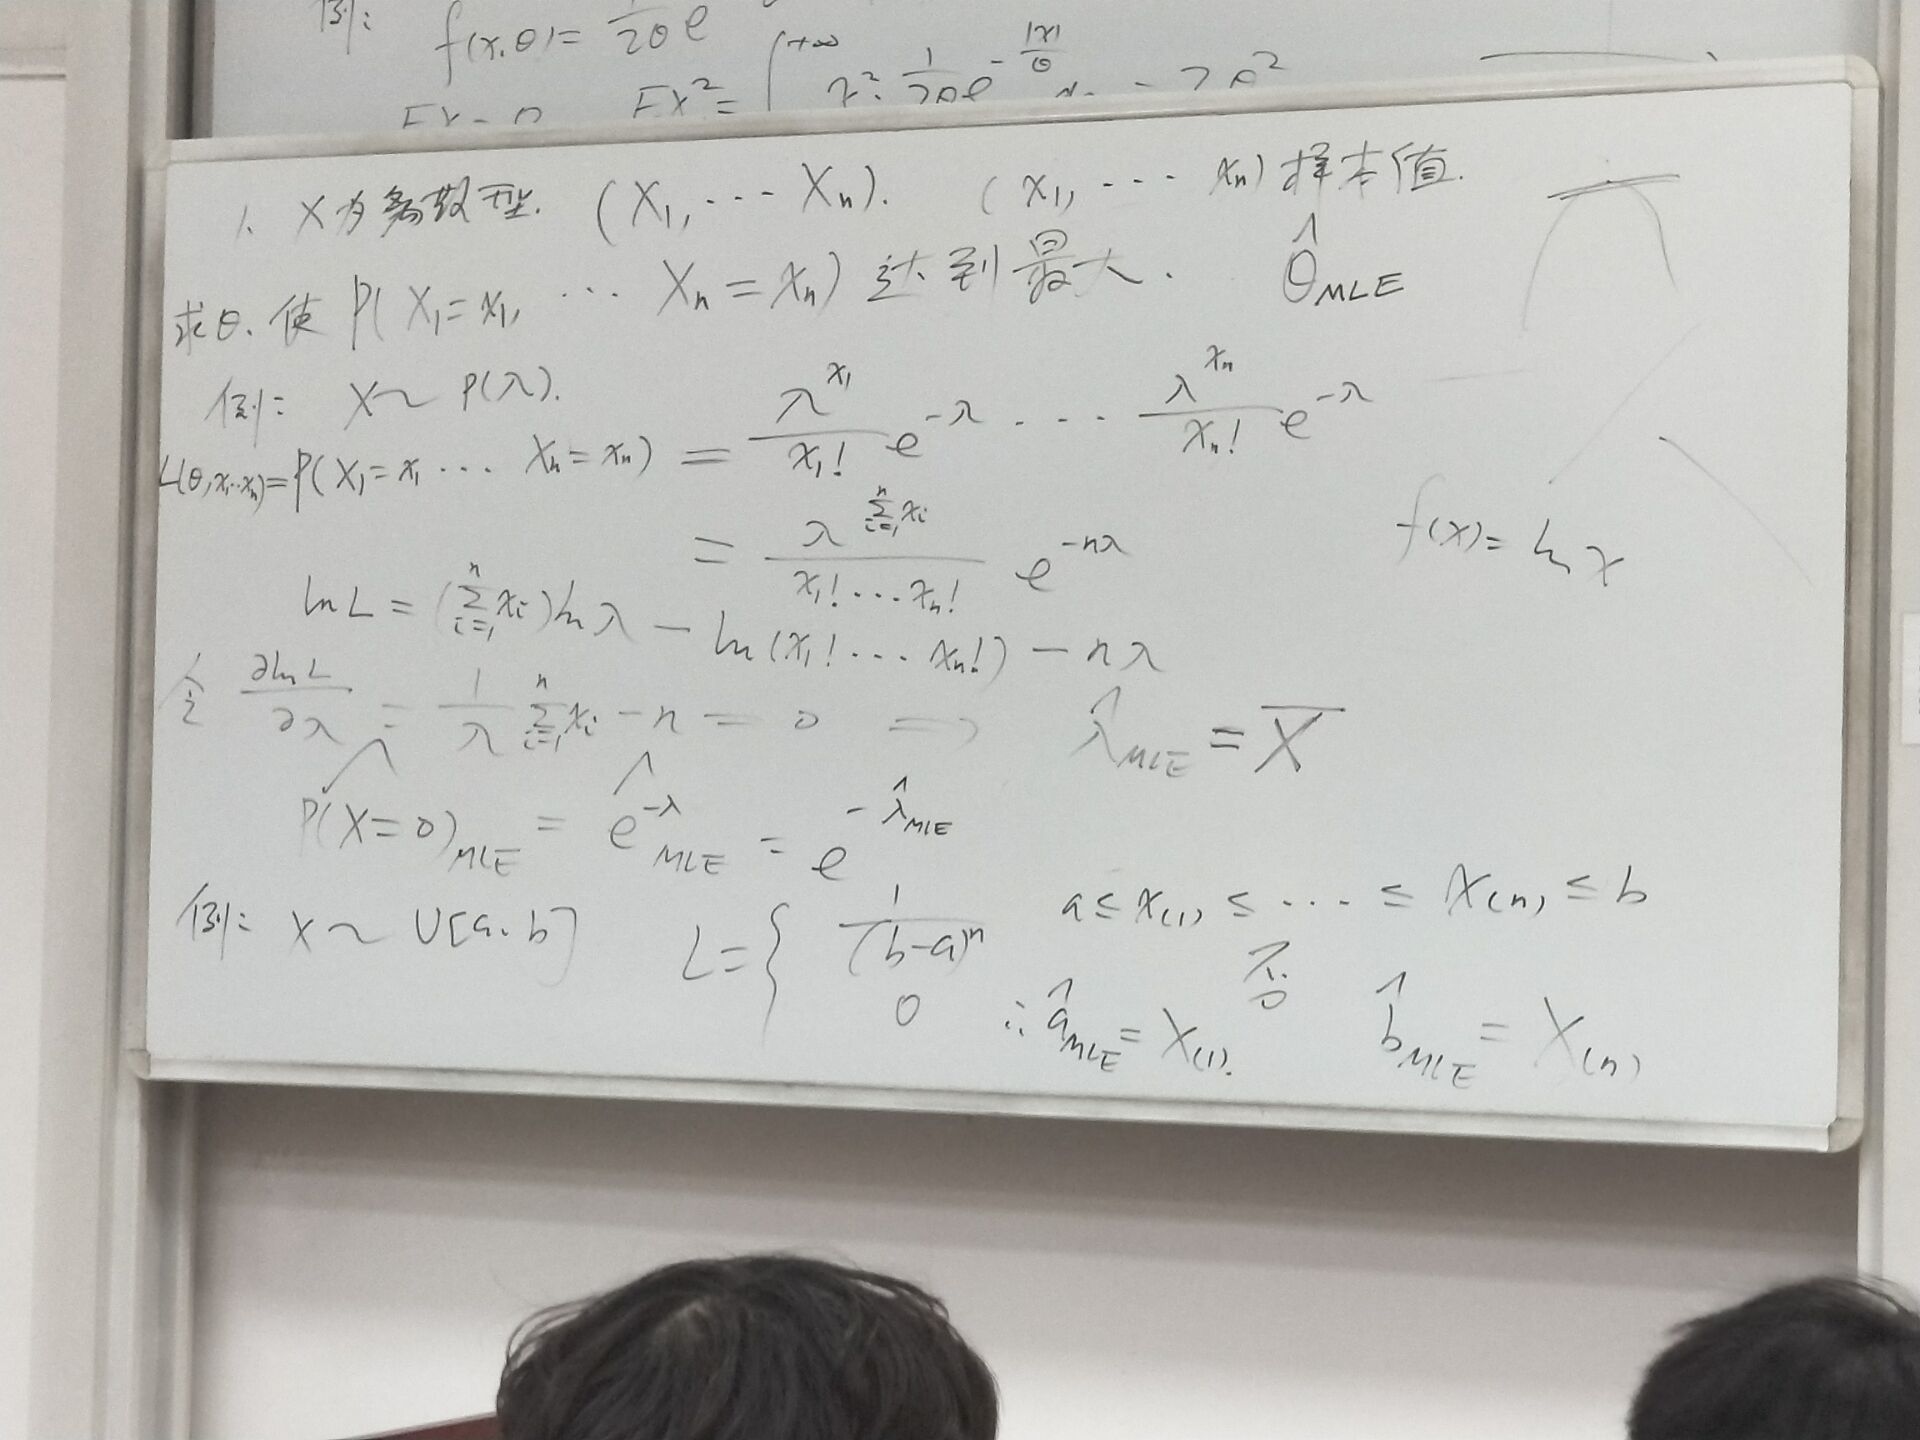 例: f(x,θ)= 1/2θ e
EX=0 EX²= ∫^{+∞} x²·1/2θ e^{-|x|/θ} dx = 2θ²
1. X为离散型. (X₁,⋯Xₙ). (x₁,⋯xₙ)样本值.
求θ.使 P(X₁=x₁,⋯Xₙ=xₙ)达到最大. θ̂_MLE
例: X~P(λ).
L(θ,x₁⋯xₙ)=P(X₁=x₁⋯Xₙ=xₙ) = λ^{x₁}/x₁! e^{-λ}⋯λ^{xₙ}/xₙ! e^{-λ}
= λ^{∑_{i=1}^{n}xᵢ}/(x₁!⋯xₙ!) e^{-nλ}
f(x)=ln x
lnL=(∑_{i=1}^{n}xᵢ)lnλ-ln(x₁!⋯xₙ!)-nλ
令 ∂lnL/∂λ = 1/λ ∑_{i=1}^{n}xᵢ-n=0 ⇒ λ̂_MLE=X̄
P̂(X=0)_MLE = ê^{-λ}_MLE = e^{-λ̂_MLE}
例: X~U[a,b] L={ 1/(b-a)ⁿ a≤x₍₁₎≤⋯≤x₍ₙ₎≤b
0 不
∴ â_MLE=X₍₁₎. b̂_MLE=X₍ₙ₎